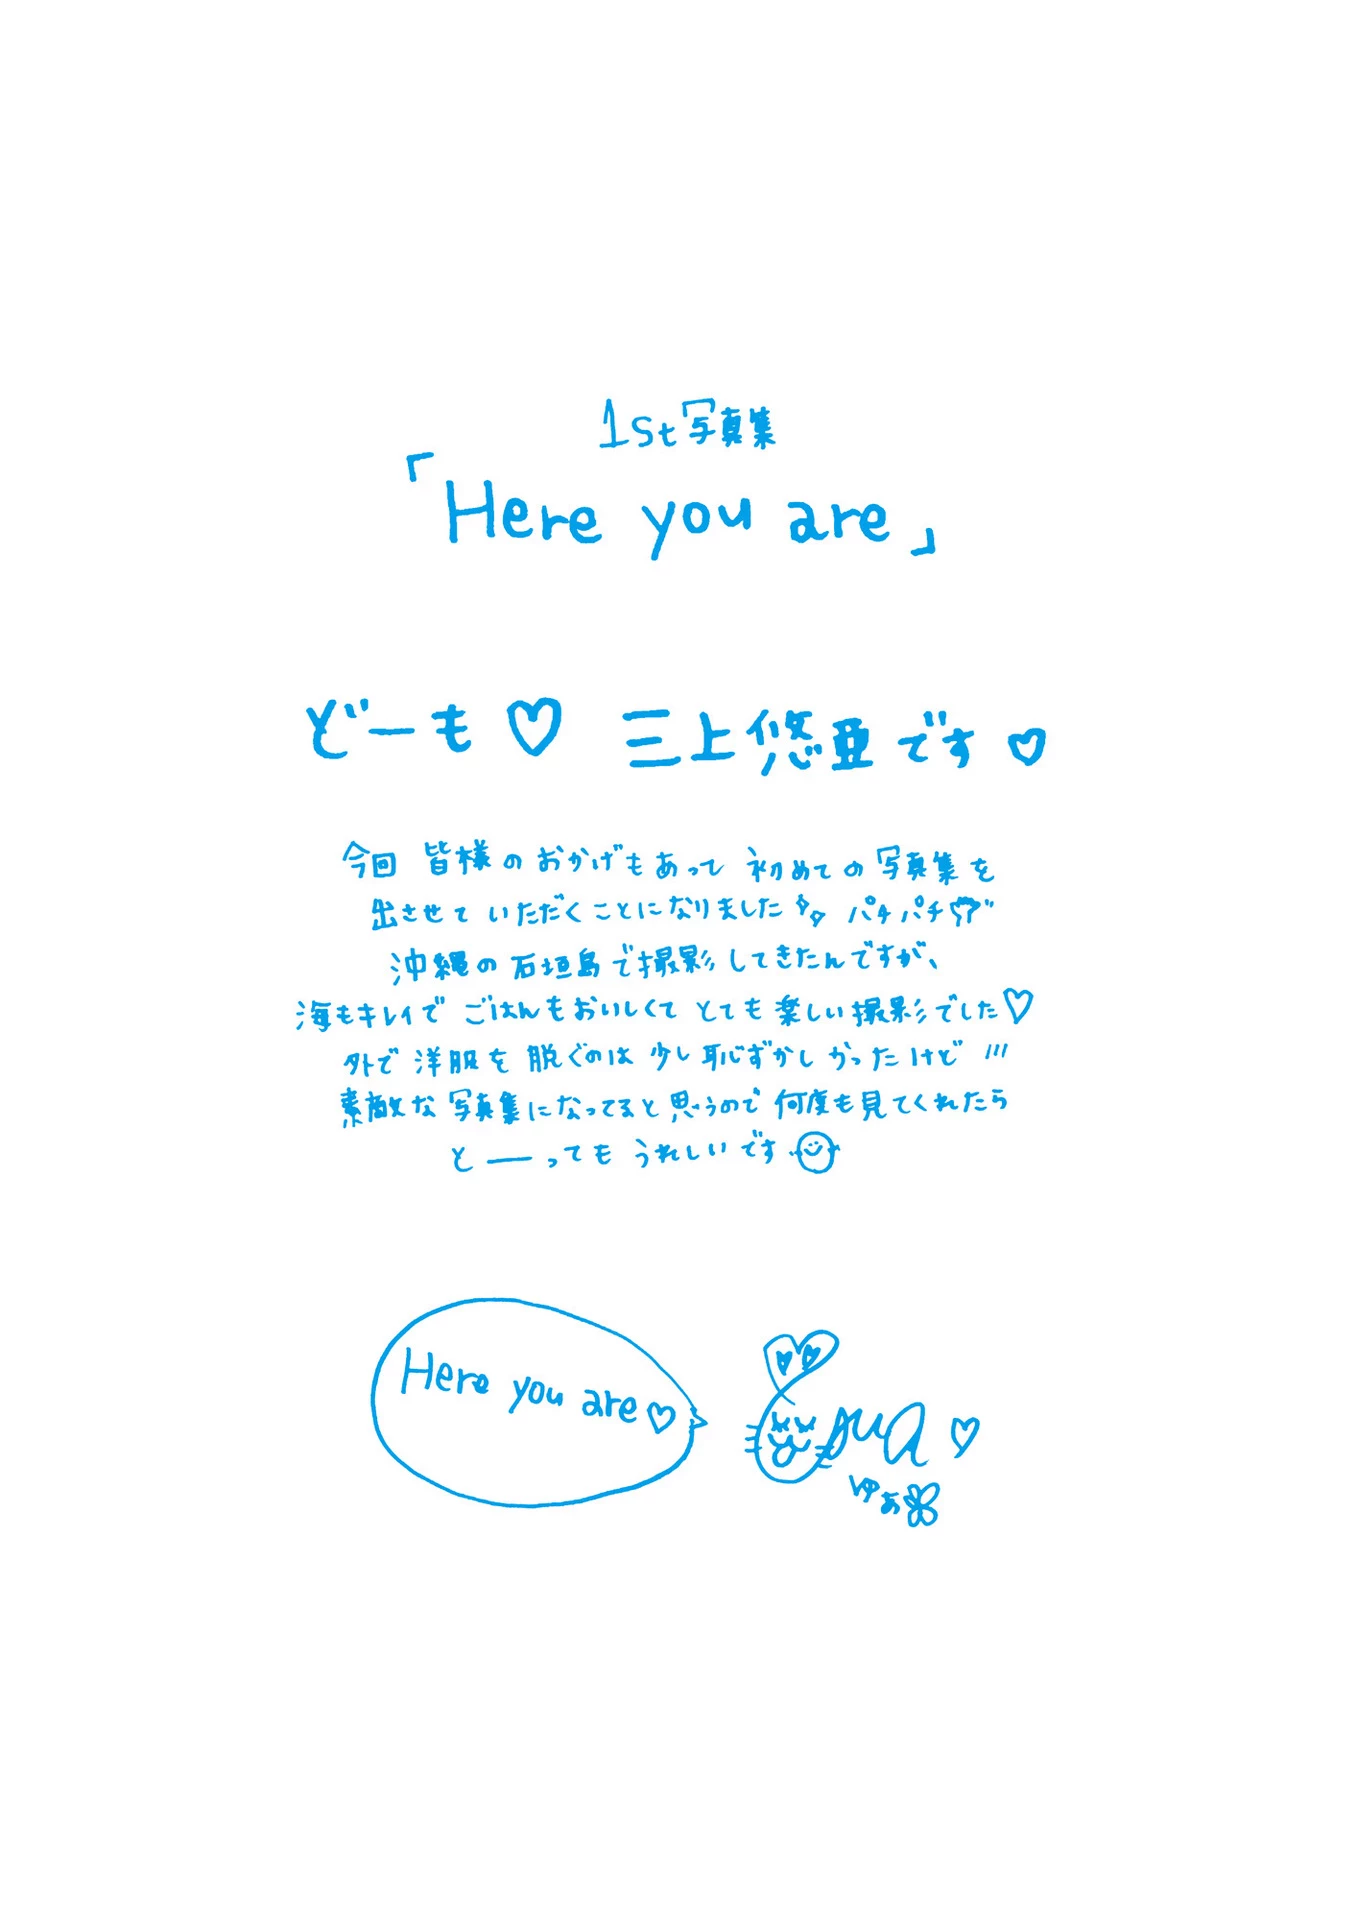 1st写真集
「Here you are」
どーも♡ 三上悠亜です♡
今回 皆様のおかげもあって 初めての写真集を
出させていただくことになりました パチパチ
沖縄の石垣島で撮影してきたんですが、
海もキレイで ごはんもおいしくて とても楽しい撮影でした♡
外で洋服を脱ぐのは少し恥ずかしかったけど !!!
素敵な写真集になってると思うので何度も見てくれたら
と――ってもうれしいです
Here you are♡
Yua♡
ゆあ